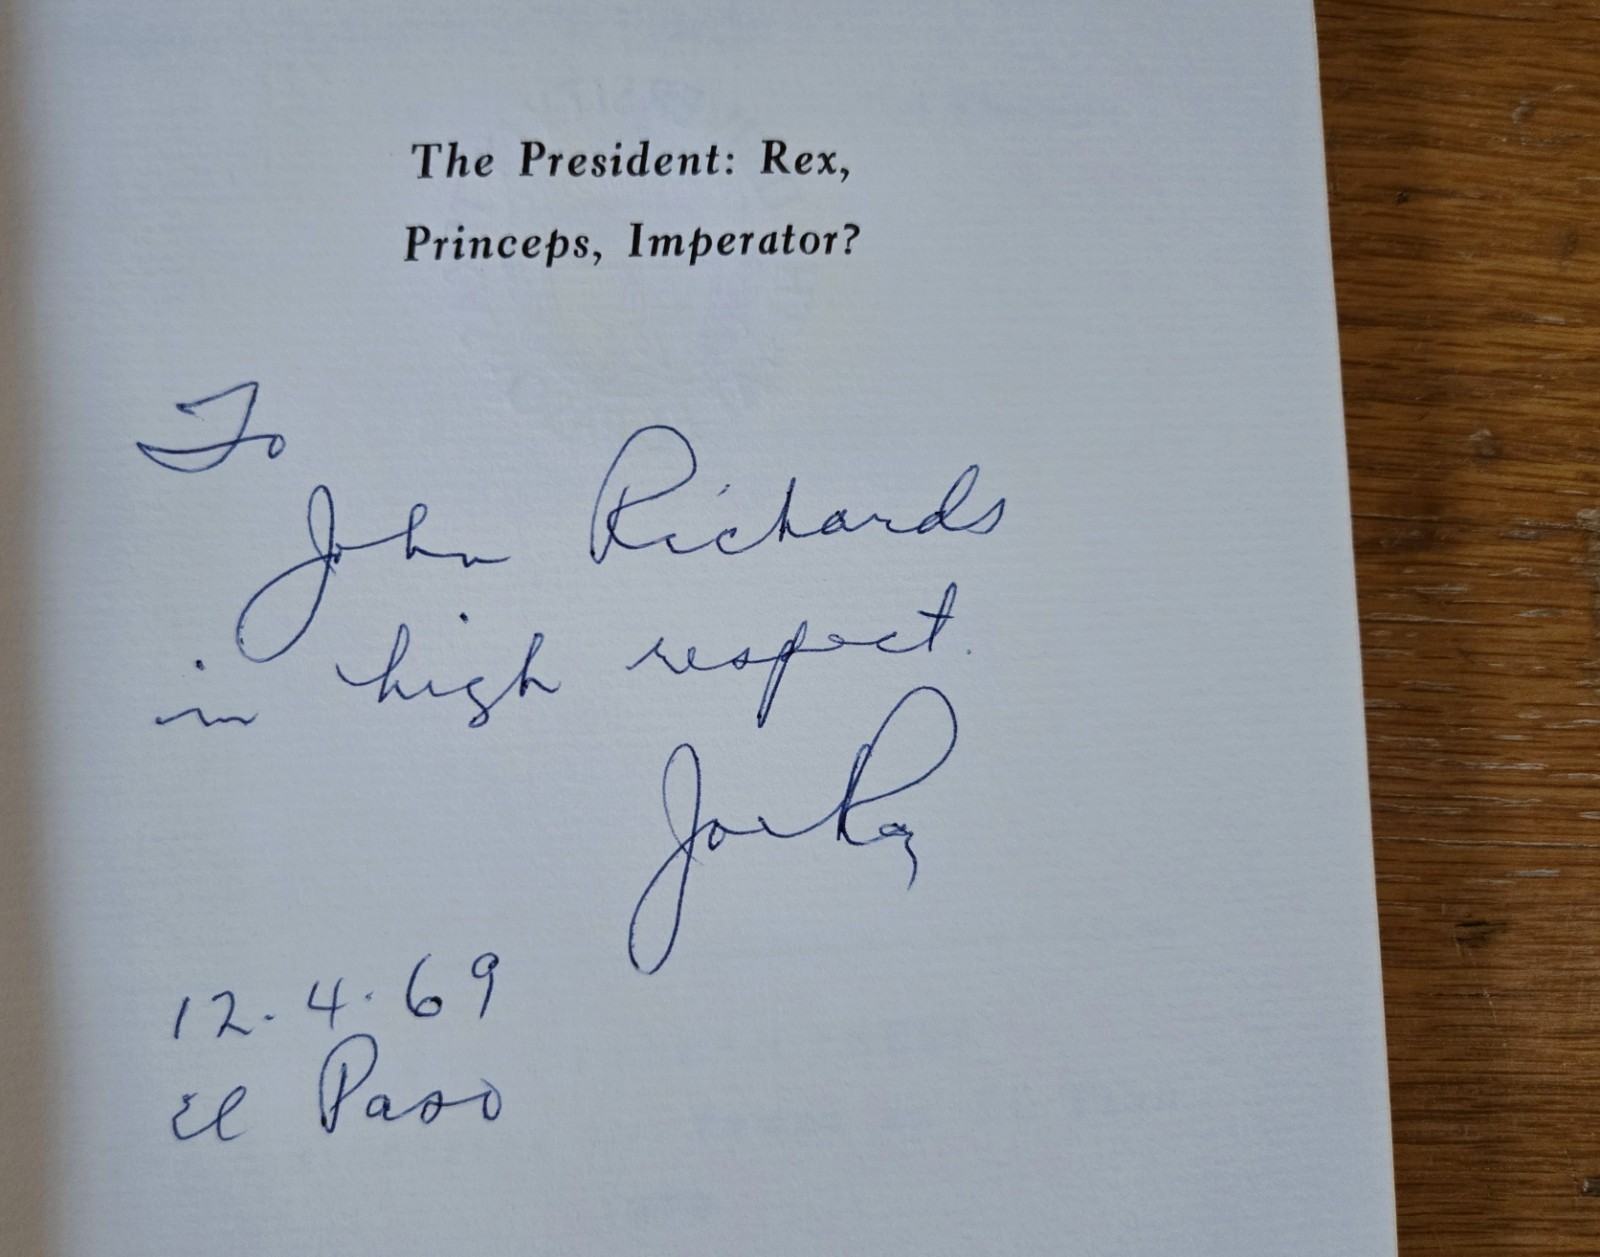 The President: Rex,
Princeps, Imperator?
To
John Richards
in high respect.
Joe Ray
12.4.69
El Paso